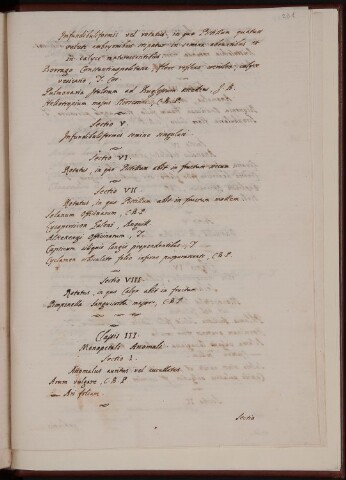 Infundibuliformis vel rotatus, in quo Pistillum quatuor
veluti embryonibus stipatur in semina abeuntibus et
in calyce maturescentibus
Borrago Constantinopolitana, flore reflexo caeruleo, calyce
vesicario, T. Cor
Pulmonaria Italorum ad Buglossum accedens, J. B.
Heliotropium majus Dioscoridis, C.B.P.
Sectio V
Infundibuliformis semine singulari
Sectio VI
Rotatus, in quo Pistillum abit in fructum siccum
Sectio VII
Rotatus, in quo Pistillum abit in fructum mollem
Solanum Officinarum, C.B.P.
Lycopersicon Galeni, Anguill.
Alkekengi Officinarum, T.
Capsicum siliquis longis propendentibus, T.
Cyclamen orbiculato folio inferne purpurascente, C.B.P.
Sectio VIII
Rotatus, in quo Calyx abit in fructum
Pimpinella Sanguisorba major, C.B.P.
Classis III
Monopetali Anomali
Sectio I.
Anomalus auritus vel cucullatus
Arum vulgare, C.B.P.
folium.
Sectio